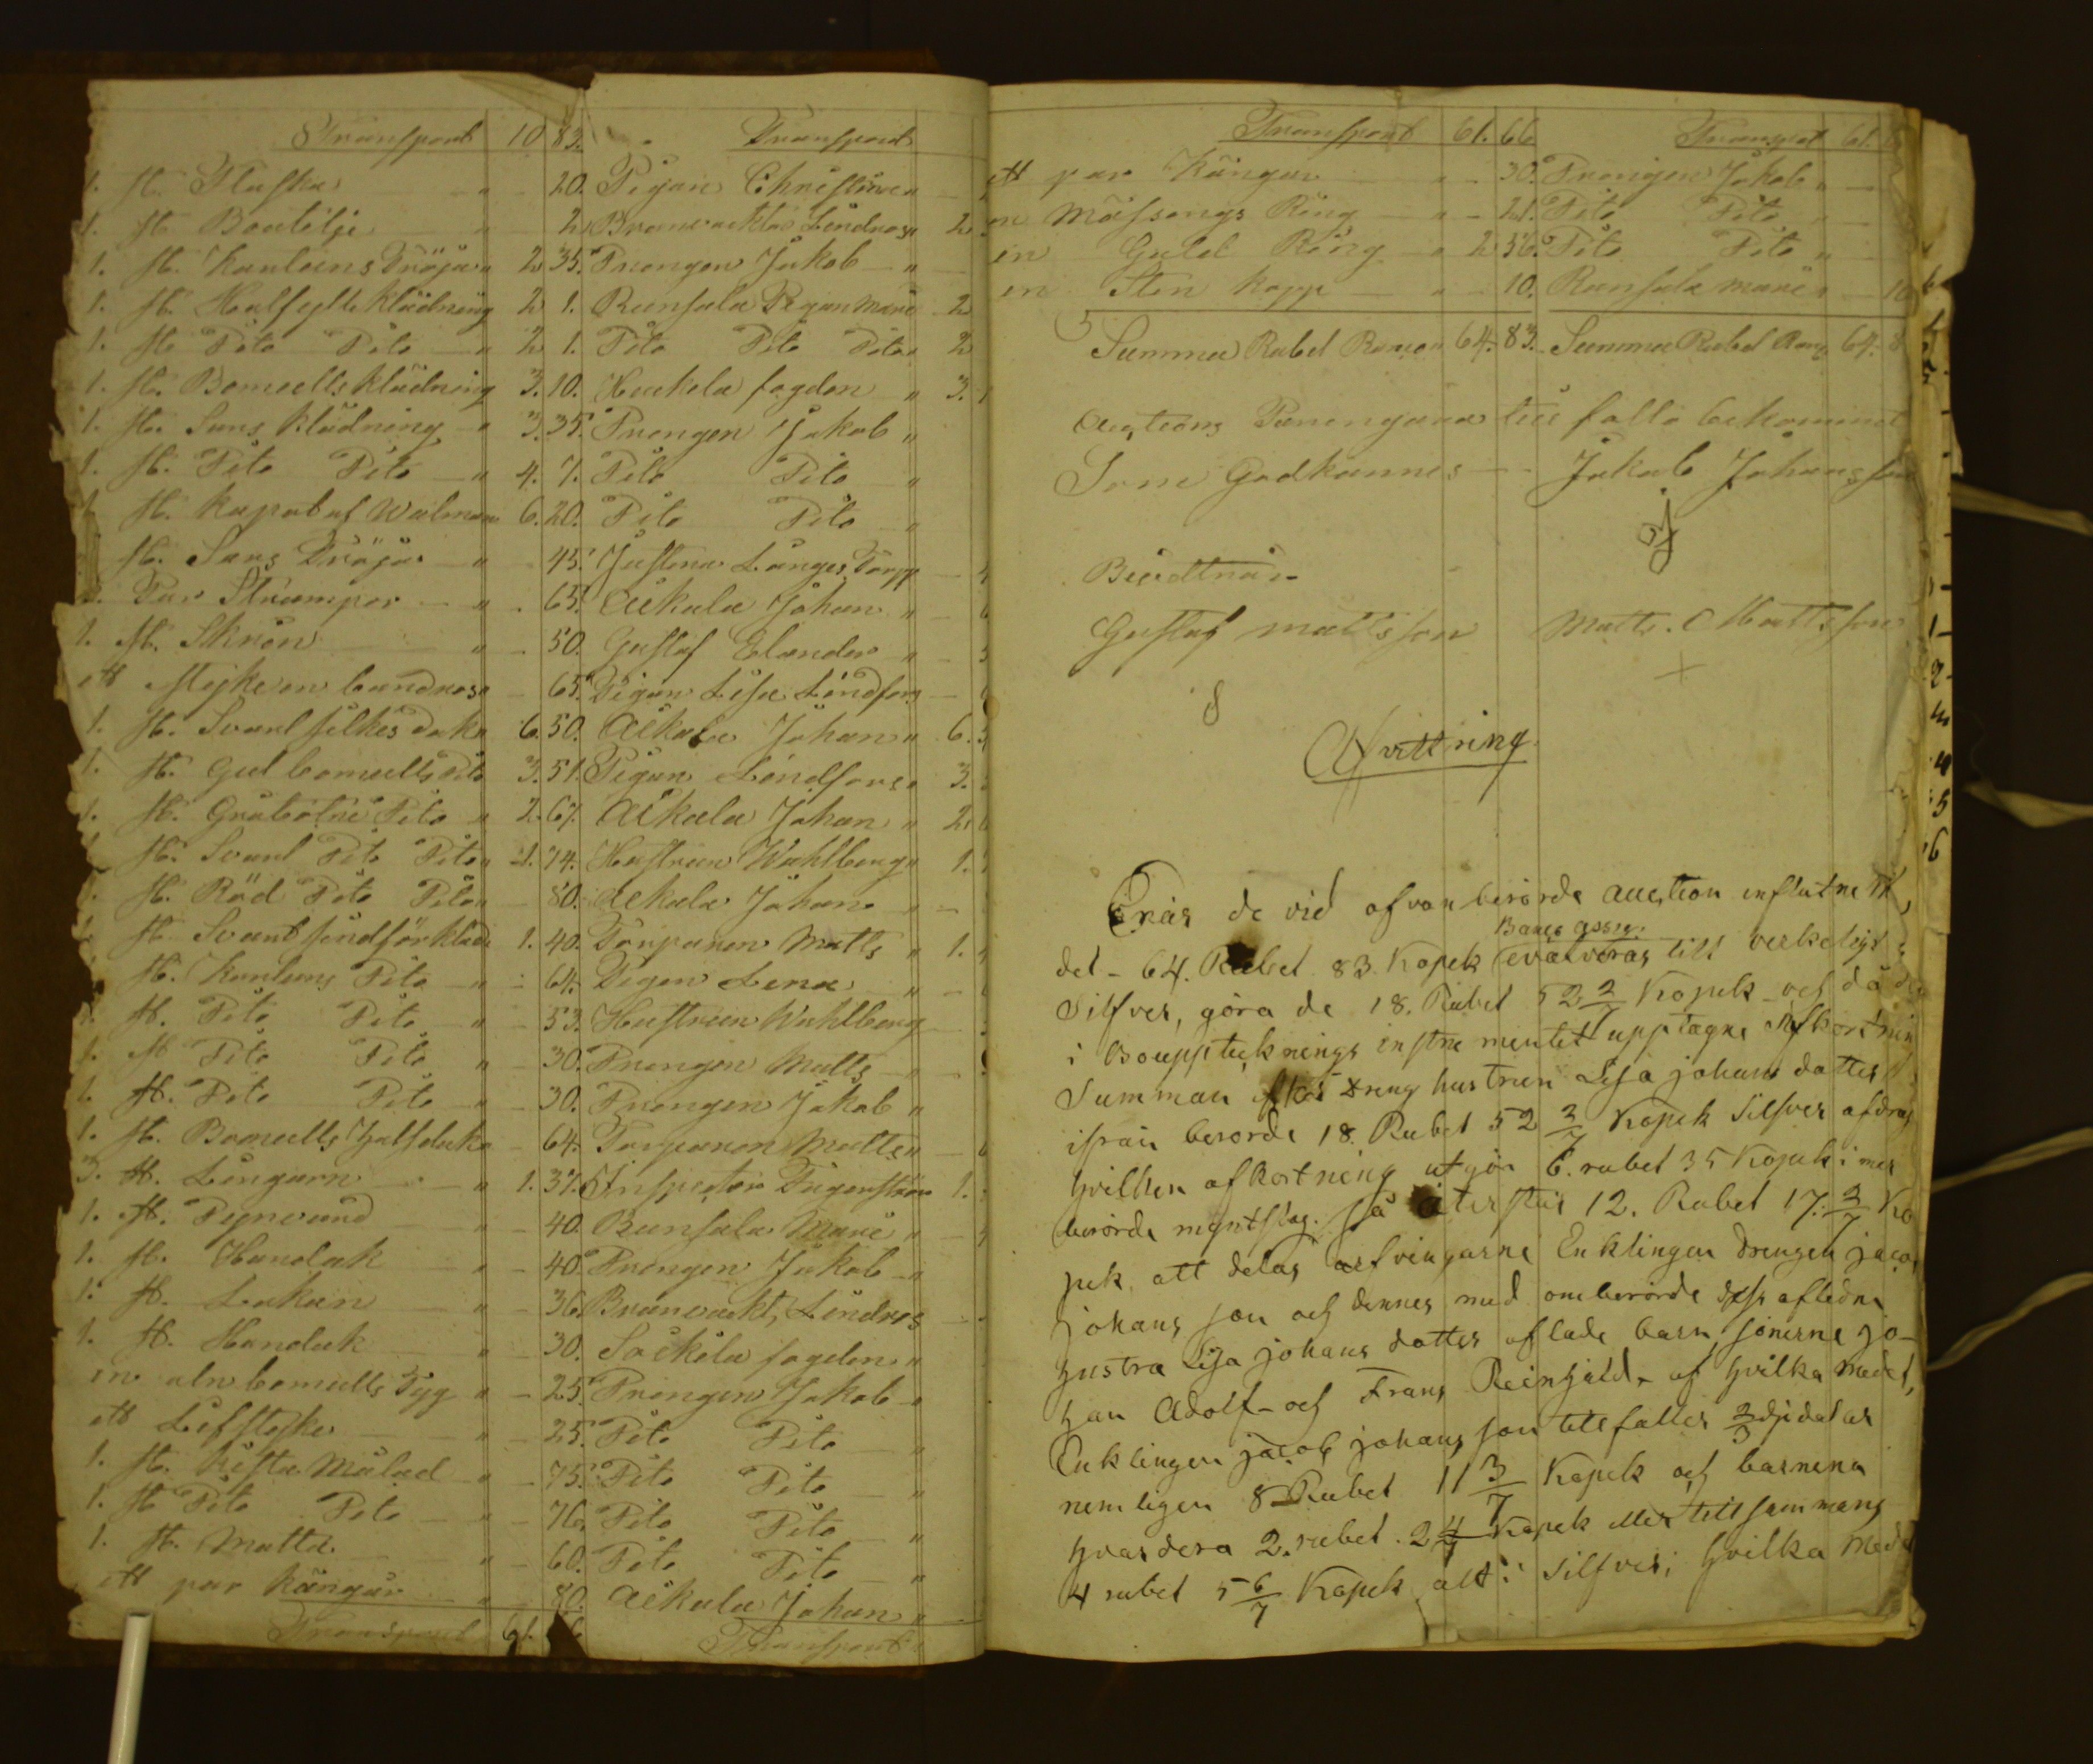 Transport 10 83. Transport
1. st. Flaska " - 20. Pigan Christina "
1. st. Boutilje " 2 Branvacktar Lindros " 2
1. st. Kanloens Tröja " 2 35. Drengen Jakob "
1. st. Halfyllt klädning 2 1. Runsala Pigan Marie 2
1. st. Dito Dito " 2 1. Dito Dito Dito " 2
1. st. Bomulls klädning 3. 10. Huckala fogden " 3. 1
1. st. Sars klädning " 3. 35. Drengen Jakob "
1. st. Dito Dito " 4. 7. Dito Dito "
st. Kapot af Walmar 6. 20. Dito Dito "
st. Sars Tröja " 45. Justina Långes Torpp
Par Strumpor " 65. Aikala Johan "
1. st. Skrin " - 50. Gustaf Elander "
ett stycke en bandrosa - 65. Pigan Lisa Lindfors
1. st. Svart silkes Duk " 6. 50. Aikala Johan " 6.
1. st. Gul bomulls Dito 3. 51. Pigan Lindfors " 3.
st. Gråbotnii Dito " 2. 67. Aikala Johan " 2.
st. Svart Dito Dito " 1. 74. Hustrun Wahlberg " 1.
st. Röd Dito Dito " 80. Aikala Johan "
st. Svant förkläde 1. 40. Torparen Matts " 1.
st. Kanloens Dito " - 64. Pigan Lena "
1. st. Dito Dito " - 53. Hustrun Wahlberg
1. st. Dito Dito " - 30. Drengen Matts
1. st. Dito Dito " - 30. Drengen Jakob "
1. st. Bomulls Halsduk - 64. Torparen Matts "
3. st. Lingarn " 1. 37. Inspector Tigerström 1.
1. st. " - 40. Runsala Marie "
1. st. Handuk " - 40. Drengen Jakob "
1. st. Lakan " - 36. Branvackt, Lindros
1. st. Handuk " - 30. Saikila fogden "
en aln bomulls Tyg " - 25. Drengen Jakob "
ett Lifstycke " - 25. Dito Dito "
1. st. Kista Målad " - 75. Dito Dito "
1. st. Dito Dito " - 76. Dito Dito "
1. st. Matta " - 60. Dito Dito "
ett par Kängår " 80. Aikala Johan "
Transport 61. 66 Transport
Transport 61. 66 Transport 61.
ett par Kängar " - 30. Drengen Jakob "
en Mässengs Ring " - 21. Dito Dito "
en Guld Ring " 2 56. Dito Dito "
en Sten kopp " - 10. Runsala Marie " - 10
Summa Rubel Banco " 64. 83. Summa Rubel Banco 64. 8
Auctions Penningarna till fallo bekommit
Som Godkannes - Jakob Johansson
Bevittnar
Gustaf Mattsson Matts. Mattsson
+
Afvittring
Enär de vid ofvan berörde auction inflütne
Banco assig.
det - 64. Rubel 83. Kopek evalveras till verkeligt
Silfver, göra de 18. Rubel 52 2/7 Kopek - och då den
i Bouppteknings instrumentet upptagne Afkortnin
Summan efter Dreng hustrun Lisa johans dotter
ifrån berörde 18. Rubel 52 2/7 Kopek Silfver afdrag
hvilken afkortning utgör 6. rubel 35 Kopek i mer
berörde myntslag. så återstår 12. Rubel 17. 2/7 Ko
pek, att delas arfvingarne Enklingen Drengen jaco
johans son och dennes med omberörde dess afledna
hustra Lisa johans dotter aflade barn sönerne jo-
han Adolf - och Frans Reinhold - af hvilka medel,
Enklingen jacob johans son tillfaller 2/3 djedelar
nemligen 8 Rubel 11 3/7 Kopek och barnena
hvardera 2. rubel. 2 Kopek eller tillsammans
4 rubel 5 6/7 Kopek allt i Silfver; hvilka Medel